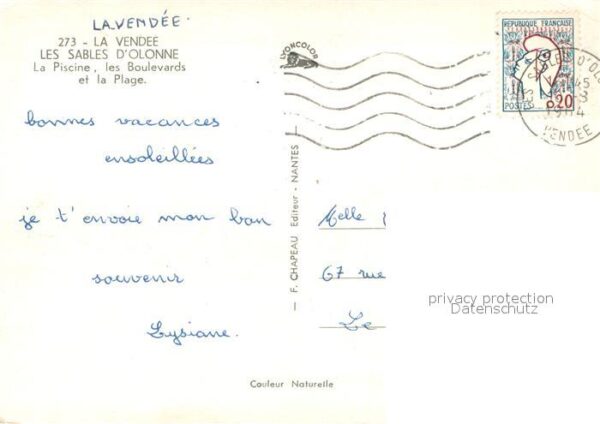 LA.VENDÉE.
273 - LA VENDEE
LES SABLES D'OLONNE
La Piscine, les Boulevards
et la Plage.
LYONCOLOR
REPUBLIQUE FRANÇAISE
POSTES 0,20
VENDEE
bonnes vacances
ensoleillées
je t'envoie mon bon
souvenir
Lysiane.
— F. CHAPEAU Editeur - NANTES —
Melle
67 rue
Le
privacy protection
Datenschutz
Couleur Naturelle